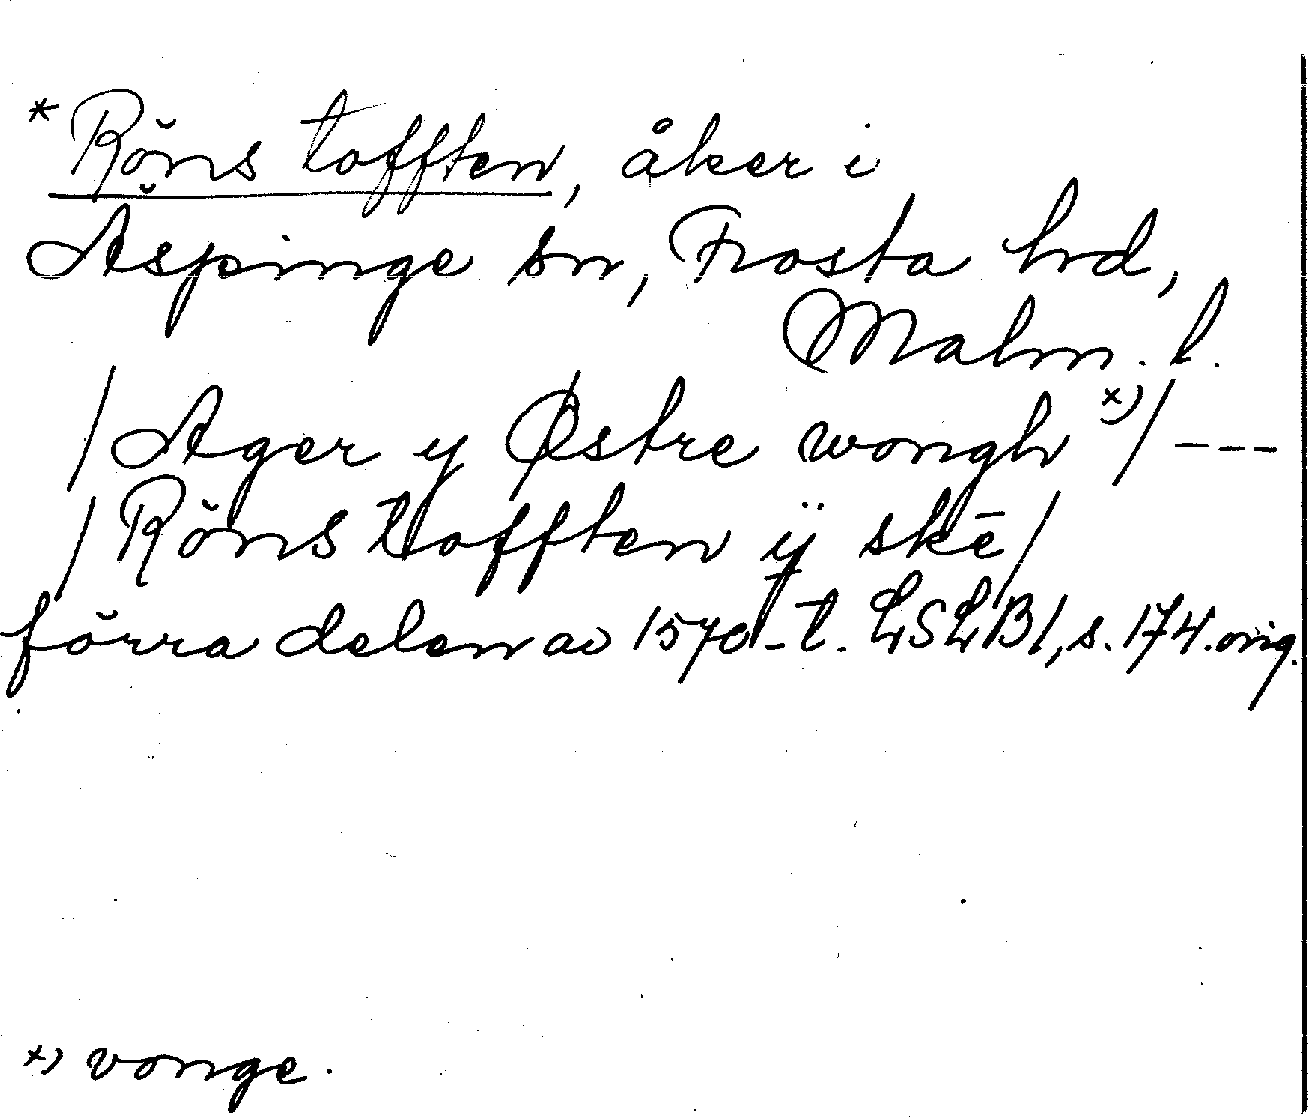 * Röns tofften, åker i
Äspinge sn, Frosta hd,
Malm. l.
/Ager y Østre wongh x)/ ---
/Röns tofften ÿ skē/
förra delen av 1570-t. LSLB1, s. 174. orig.
x) vonge.